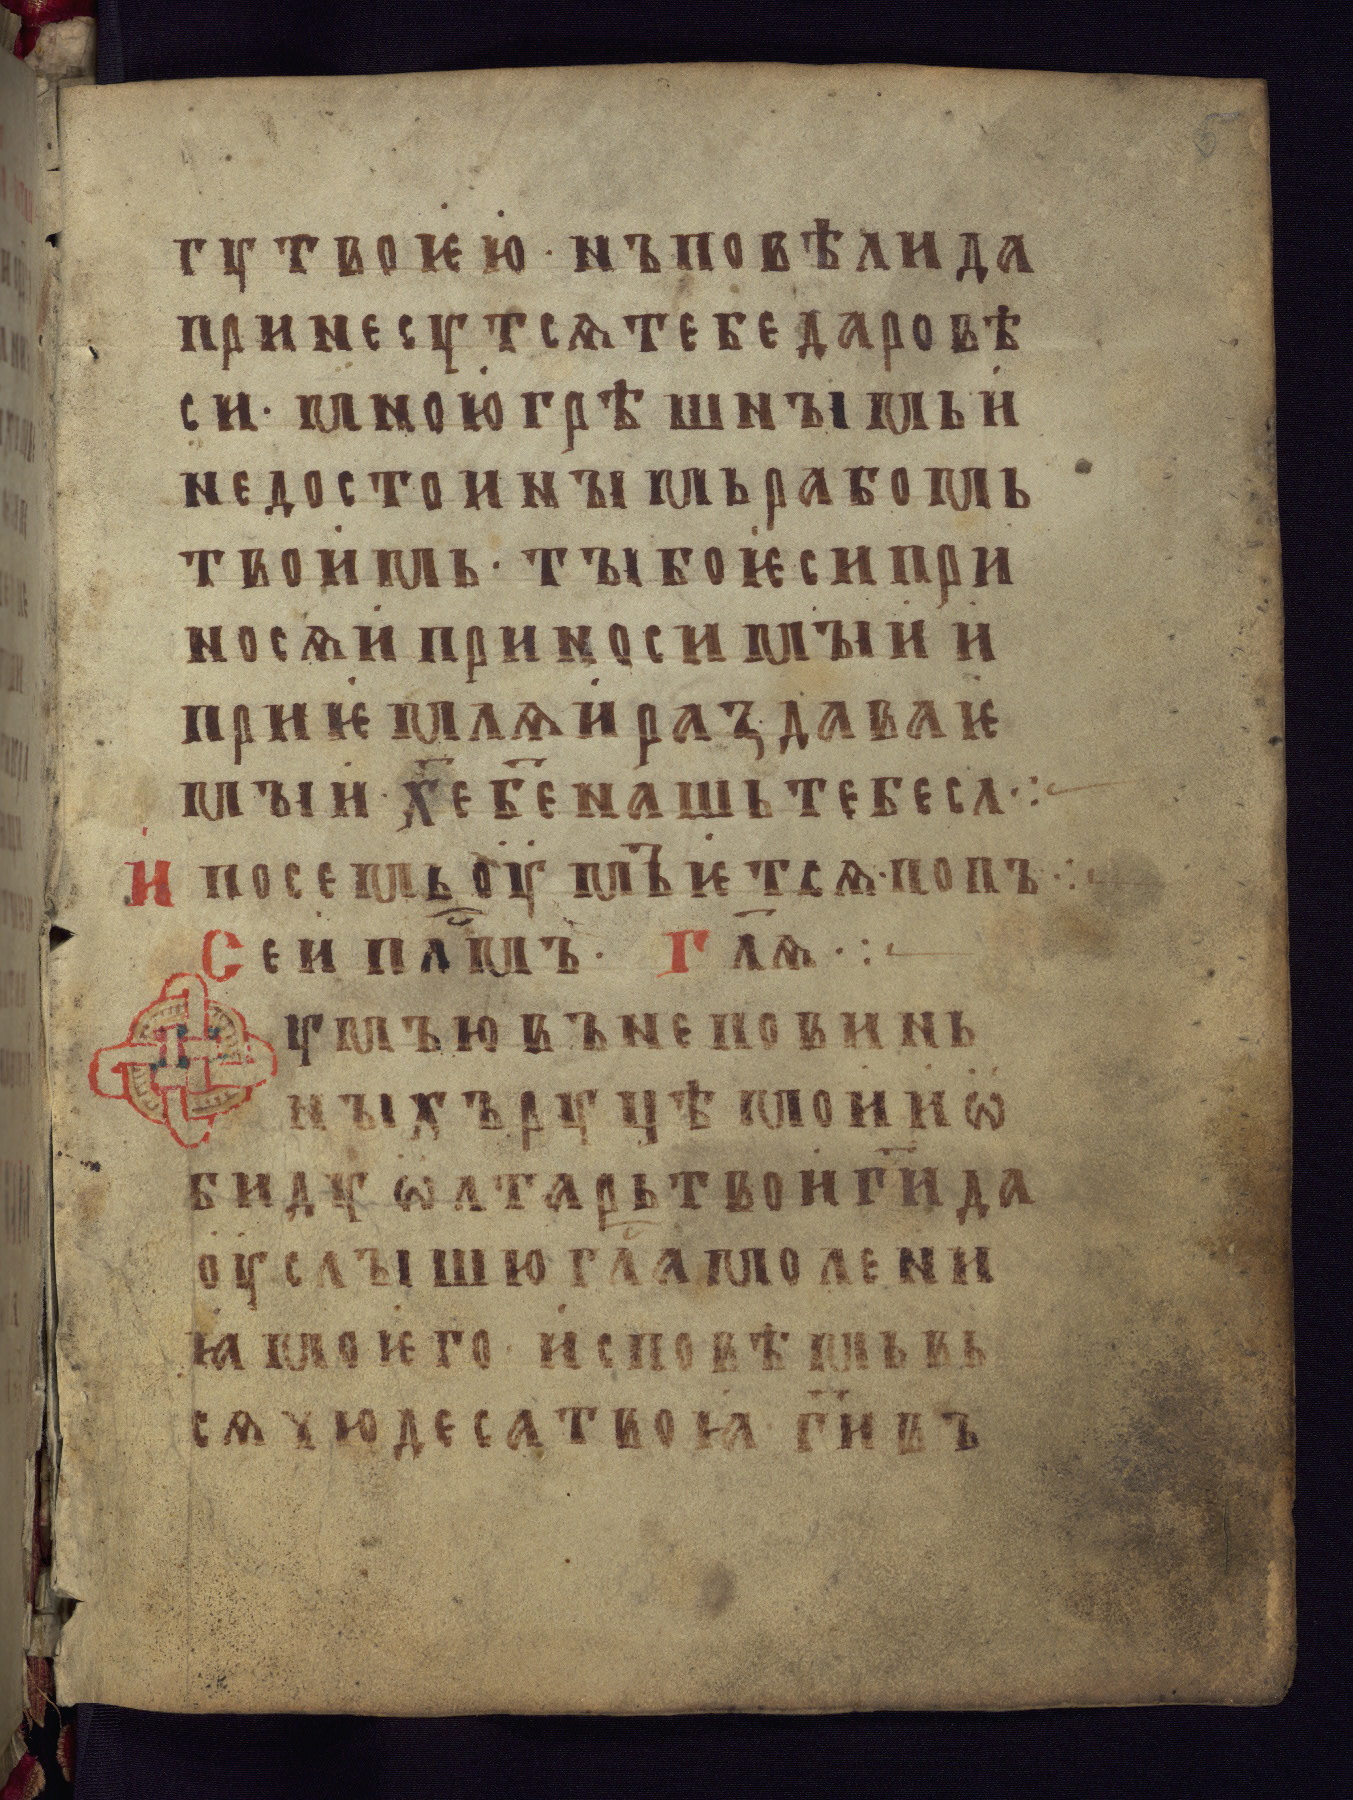 гꙋ твоѥю · нъ повѣли да
принесꙋтсѧ тебе даровѣ
си · мною грѣшнꙑмь и
недостоинꙑмь рабомь
твоимь · тꙑ бо ѥси при
носѧи приносимꙑи и
приѥмлѧи раздаваѥ
мꙑи · х҃е б҃е нашь тебе сл ·:
И посемь оумꙑѥтсѧ · попъ ·:
Сеи п҇лмъ · Г҃лѧ ·:
ꙋмъю въ неповинь
нꙑхъ рꙋцѣ мои и ѡ
бидꙋ ѡлтарь твои г҃и да
оуслꙑшю гл҇а молени
ꙗ моѥго · исповѣмь вь
сѧ чюдеса твоꙗ · г҃и въ